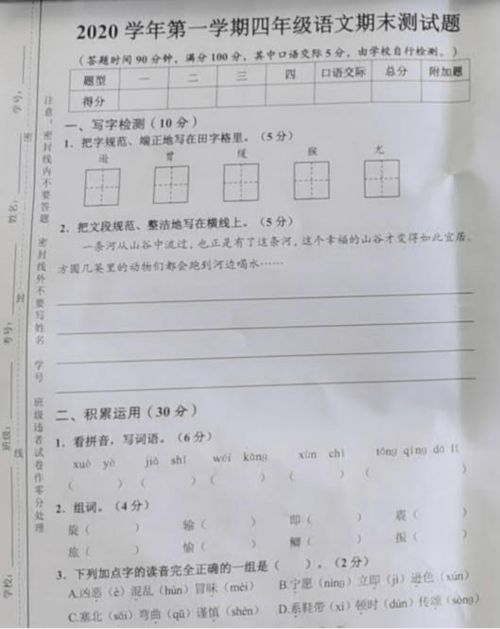 2020 学年第一学期四年级语文期末测试题
（答题时间 90 分钟，满分 100 分，其中口语交际 5 分，由学校自行检测。）
题型 一 二 三 四 口语交际 总分 附加题
得分
一、写字检测（10 分）
1. 把字规范、端正地写在田字格里。（5 分）
逊 曾 缓 猴 尤
2. 把文段规范、整洁地写在横线上。（5 分）
一条河从山谷中流过，也正是有了这条河，这个幸福的山谷才变得如此宜居。
方圆几英里的动物们都会跑到河边喝水……
二、积累运用（30 分）
1. 看拼音，写词语。（6 分）
xuè yè jià shǐ wéi kāng xùn chì tōng qíng dá lǐ
（ ） （ ） （ ） （ ） （ ）
2. 组词。（4 分）
旋（ ） 输（ ） 即（ ） 震（ ）
旅（ ） 愉（ ） 鲫（ ） 振（ ）
3. 下列加点字的读音完全正确的一组是（ ）。（2 分）
A.凶恶（è）混乱（hùn）冒昧（mèi） B.宁愿（nìng）立即（jí）逊色（xùn）
C.塞北（sài）弯曲（qū）谨慎（shèn） D.系鞋带（xì）顿时（dùn）传颂（sòng）
注意：密封线内不要答题 密封线外不要写姓名 学号 班级违者试卷作零分处理
学号：
姓名：
考号：
班级：
学校：
密
封
线